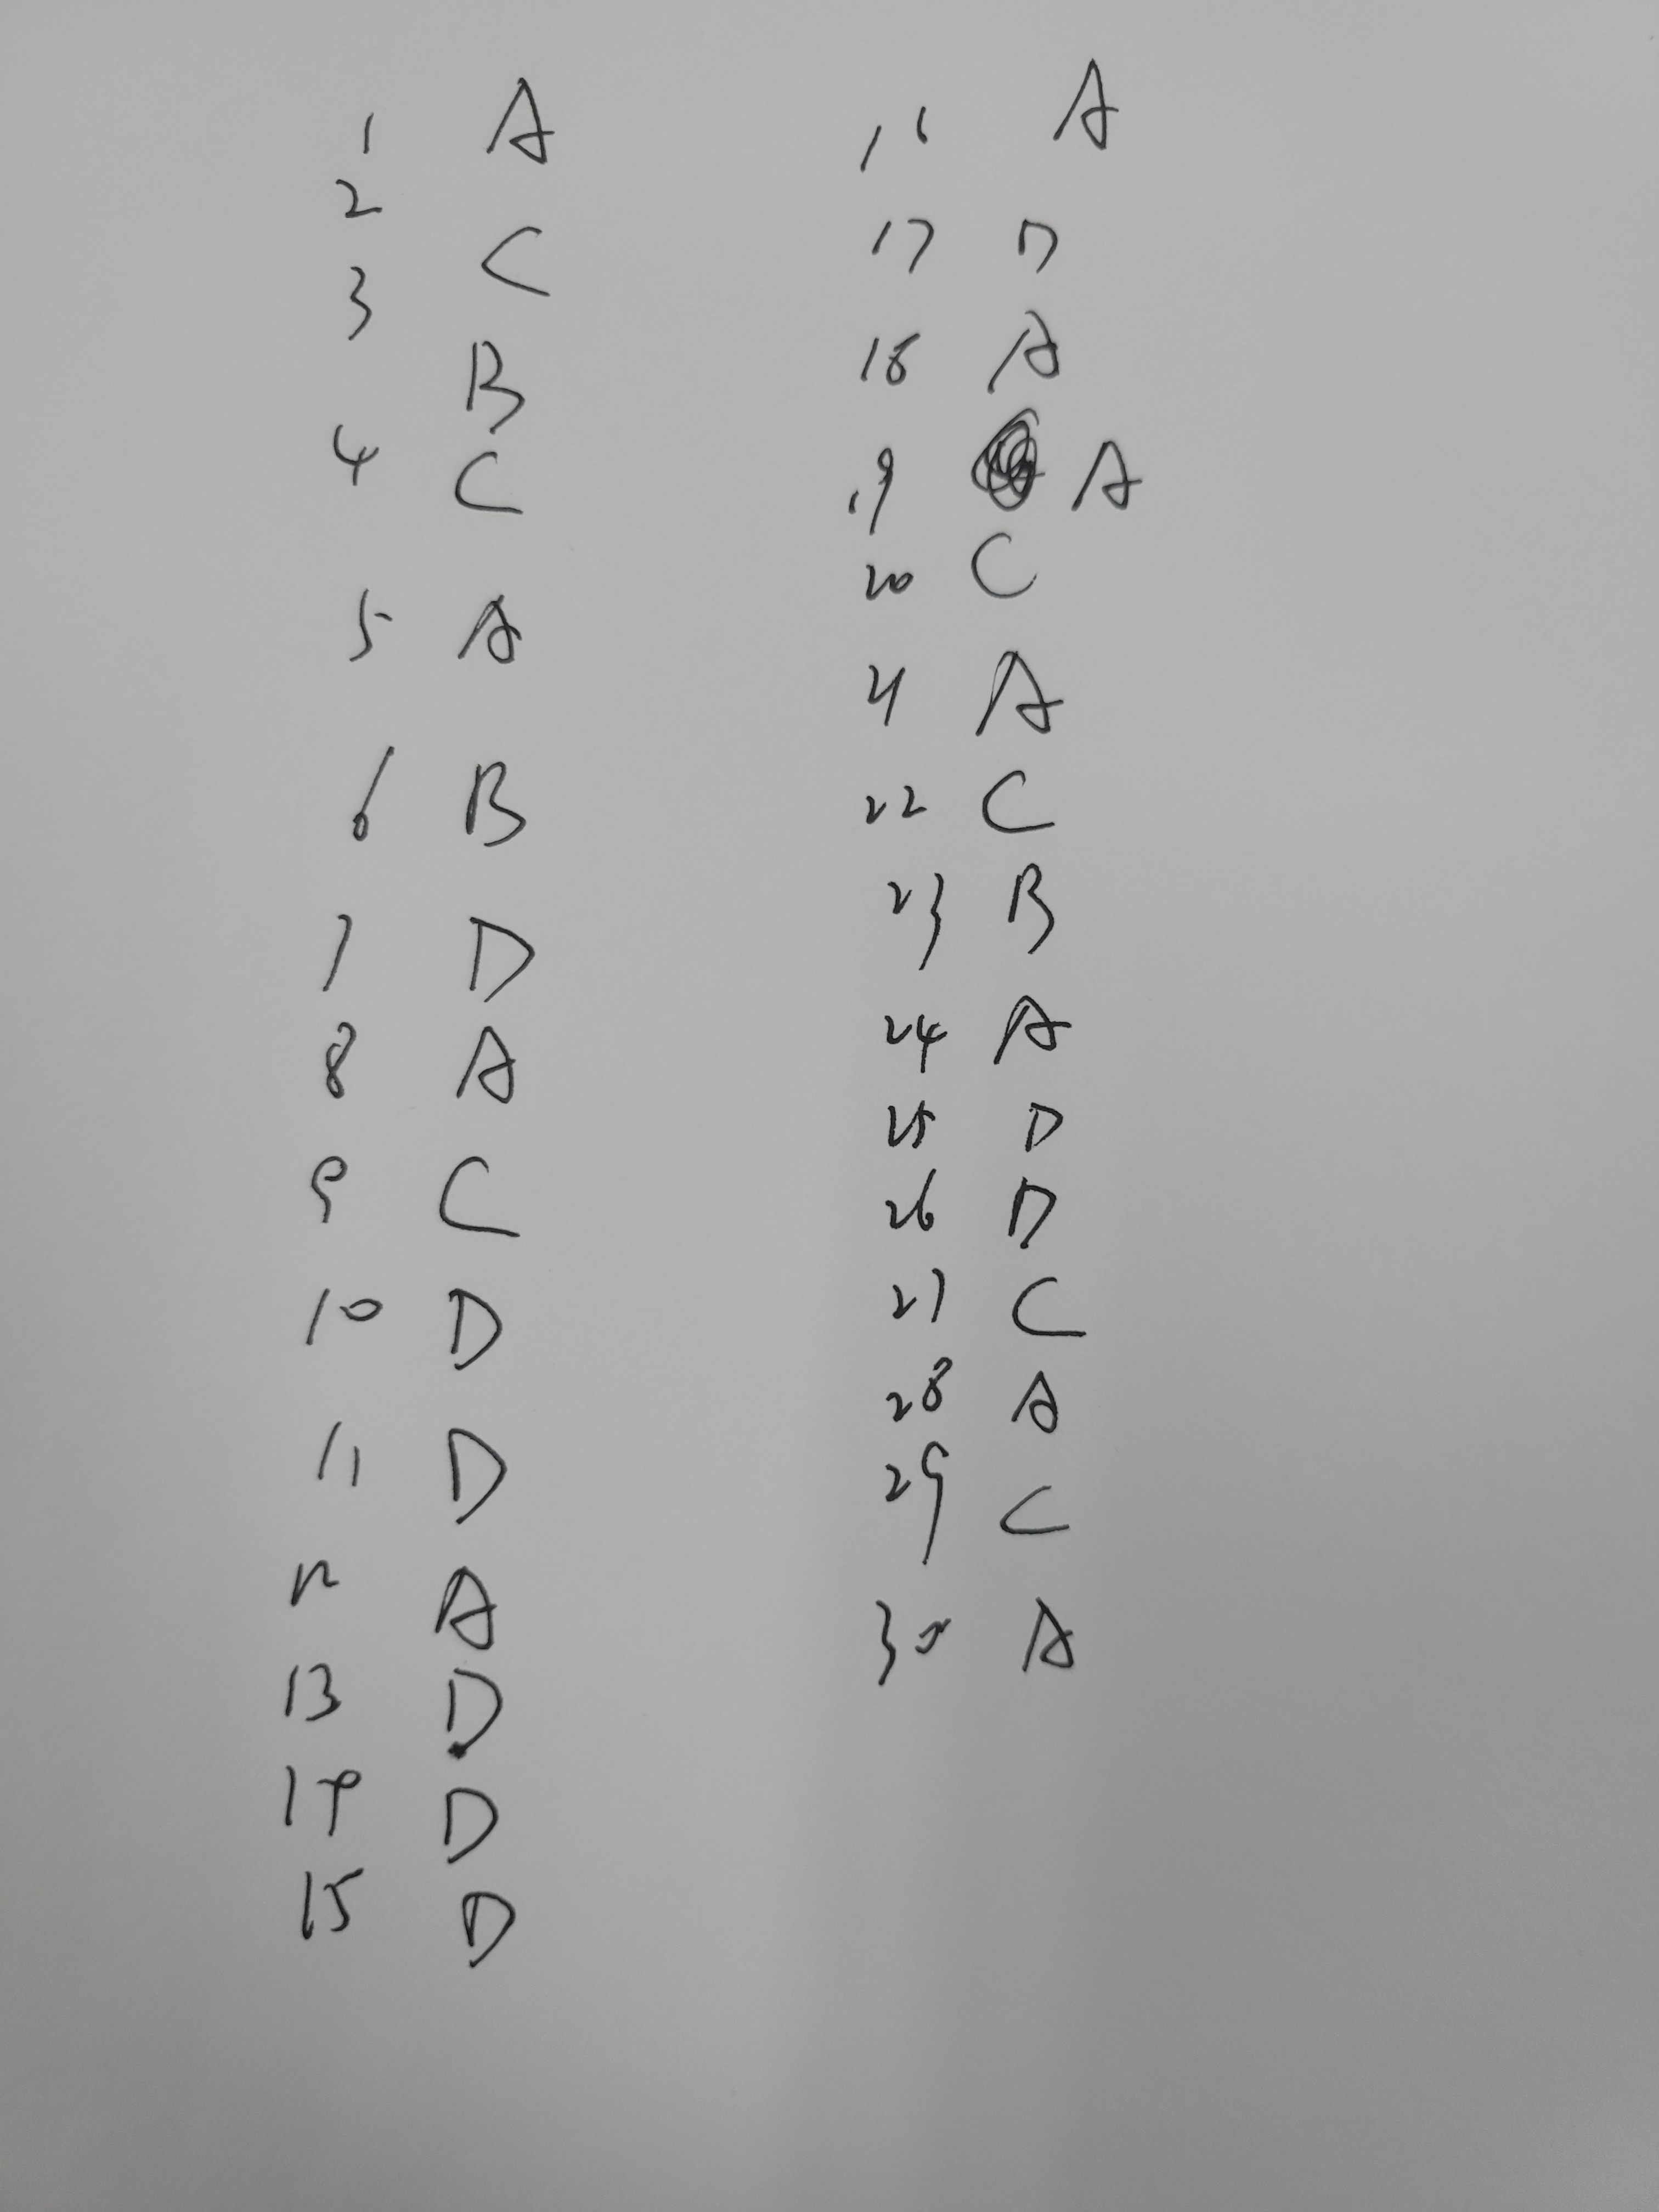 1 A
2 C
3 B
4 C
5 A
6 B
7 D
8 A
9 C
10 D
11 D
12 A
13 D
14 D
15 D
16 A
17 D
18 A
19 A
20 C
21 A
22 C
23 B
24 A
25 D
26 D
27 C
28 A
29 C
30 A